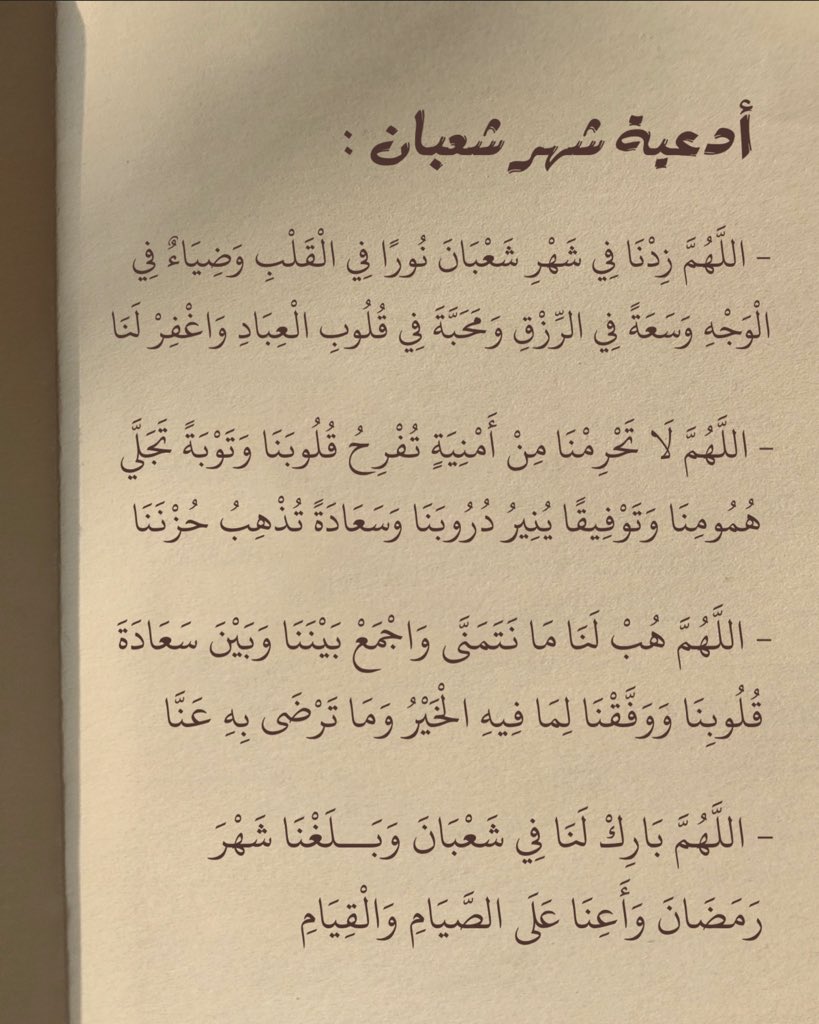 أدعية شهر شعبان :
- اللَّهُمَّ زِدْنَا فِي شَهْرِ شَعْبَانَ نُورًا فِي الْقَلْبِ وَضِيَاءٌ فِي
الْوَجْهِ وَسَعَةً فِي الرِّزْقِ وَمَحَبَّةَ فِي قُلُوبِ الْعِبَادِ وَاغْفِرْ لَنَا
- اللَّهُمَّ لَا تَحْرِمْنَا مِنْ أَمْنِيَةٍ تُفْرِحُ قُلُوبَنَا وَتَوْبَةً تَجَلَّي
هُمُومِنَا وَتَوْفِيقًا يُنِيرُ دُرُوبَنَا وَسَعَادَةً تُذْهِبُ حُزْنَنَا
- اللَّهُمَّ هُبْ لَنَا مَا نَتَمَنَّى وَاجْمَعْ بَيْنَنَا وَبَيْنَ سَعَادَةَ
قُلُوبِنَا وَوَفَّقْنَا لِمَا فِيهِ الْخَيْرُ وَمَا تَرْضَى بِهِ عَنَّا
- اللَّهُمَّ بَارِكْ لَنَا فِي شَعْبَانَ وَبَــلَغْنَا شَهْرَ
رَمَضَانَ وَأَعِنَا عَلَى الصَّيَامِ وَالْقِيَامِ